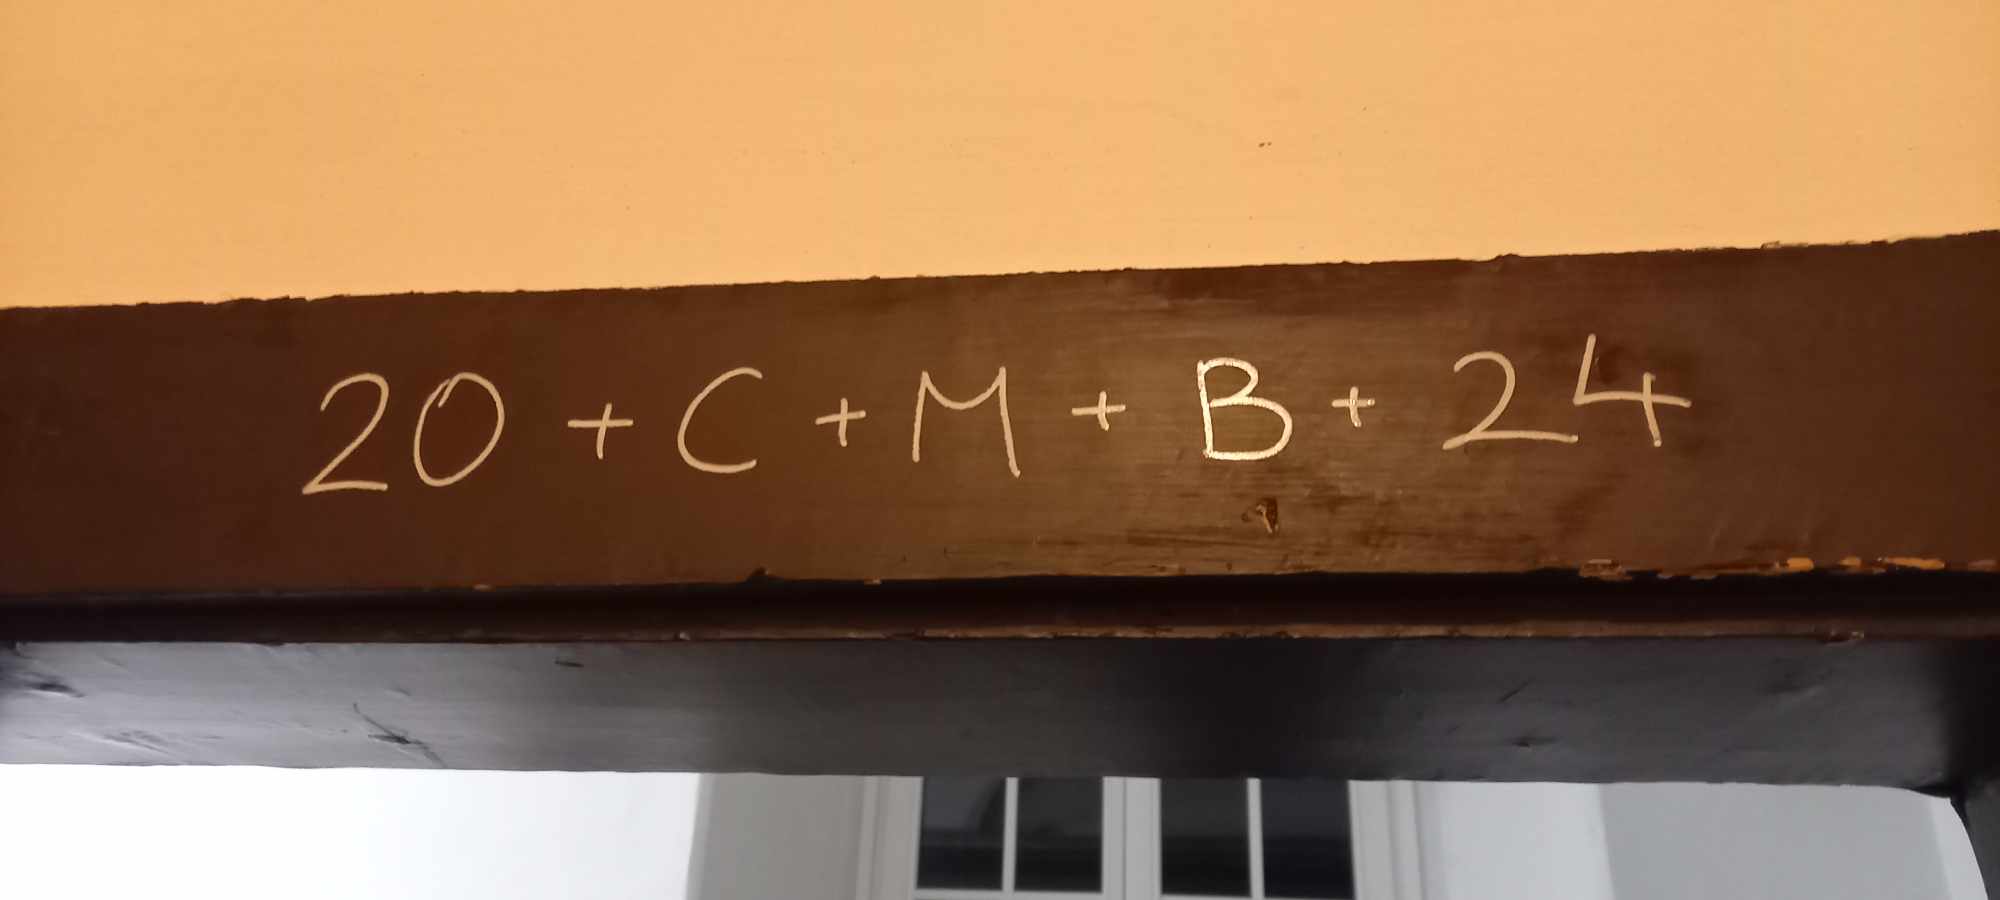 20 + C + M + B + 24